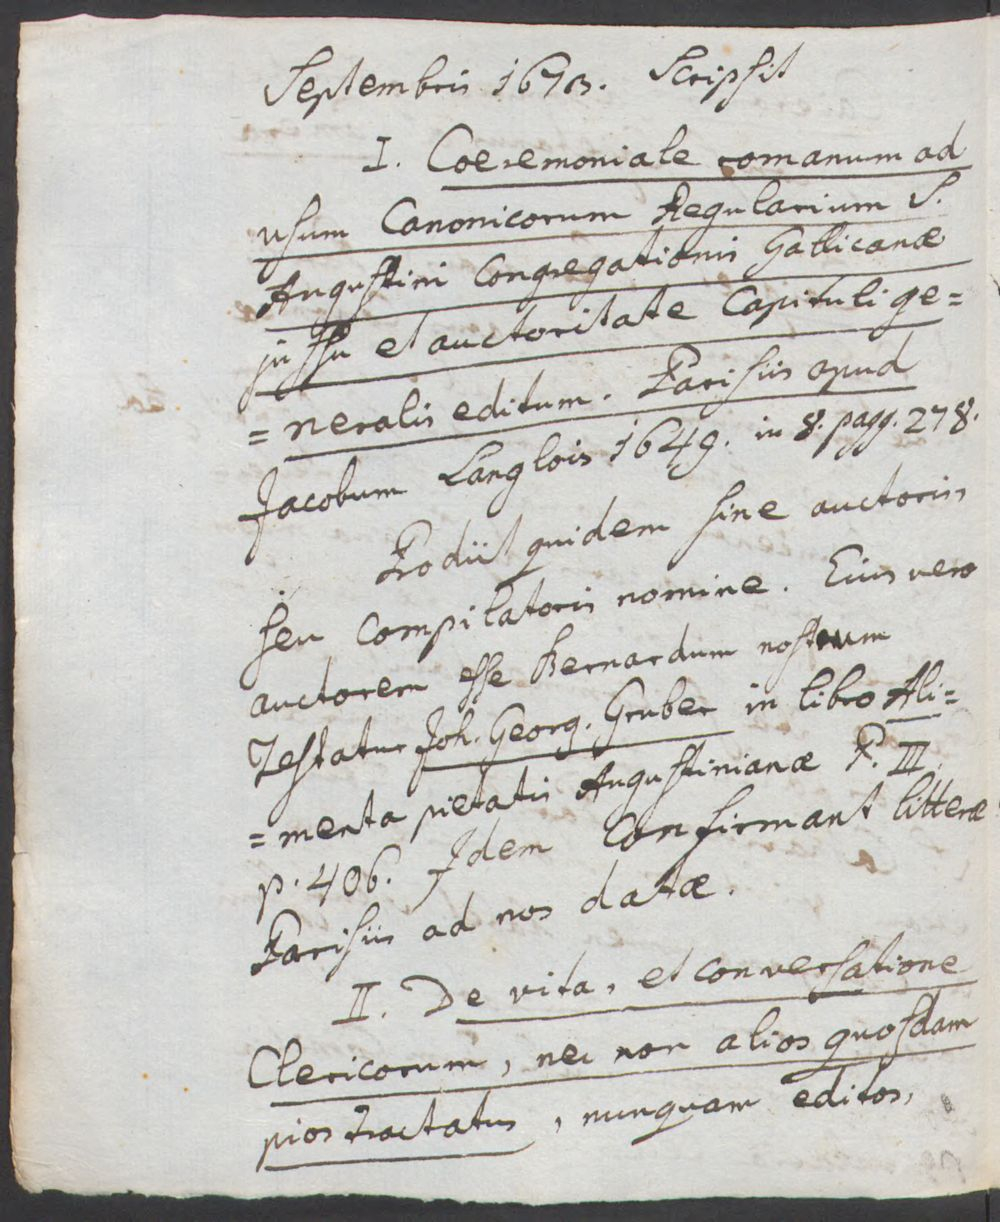 Septembris 1673. Scripsit
I. Coeremoniale romanum ad
usum Canonicorum Regularium S.
Augustini Congregationis Gallicanæ
jussu et auctoritate Capituli ge=
=neralis editum. Parisiis apud
Jacobum Langlois 1649. in 8. pagg. 278.
Prodiit quidem sine auctoris
seu compilatoris nomine. Eius vero
auctorem esse Bernardum nostrum
Testatur Joh. Georg. Gruber in libro Ali=
=menta pietatis Augustinianæ P. III.
p. 406. Idem confirmant litteræ
Parisiis ad nos datæ.
II. De vita, et conversatione
Clericorum, nec non alios quosdam
pios tractatus, nunquam editos,